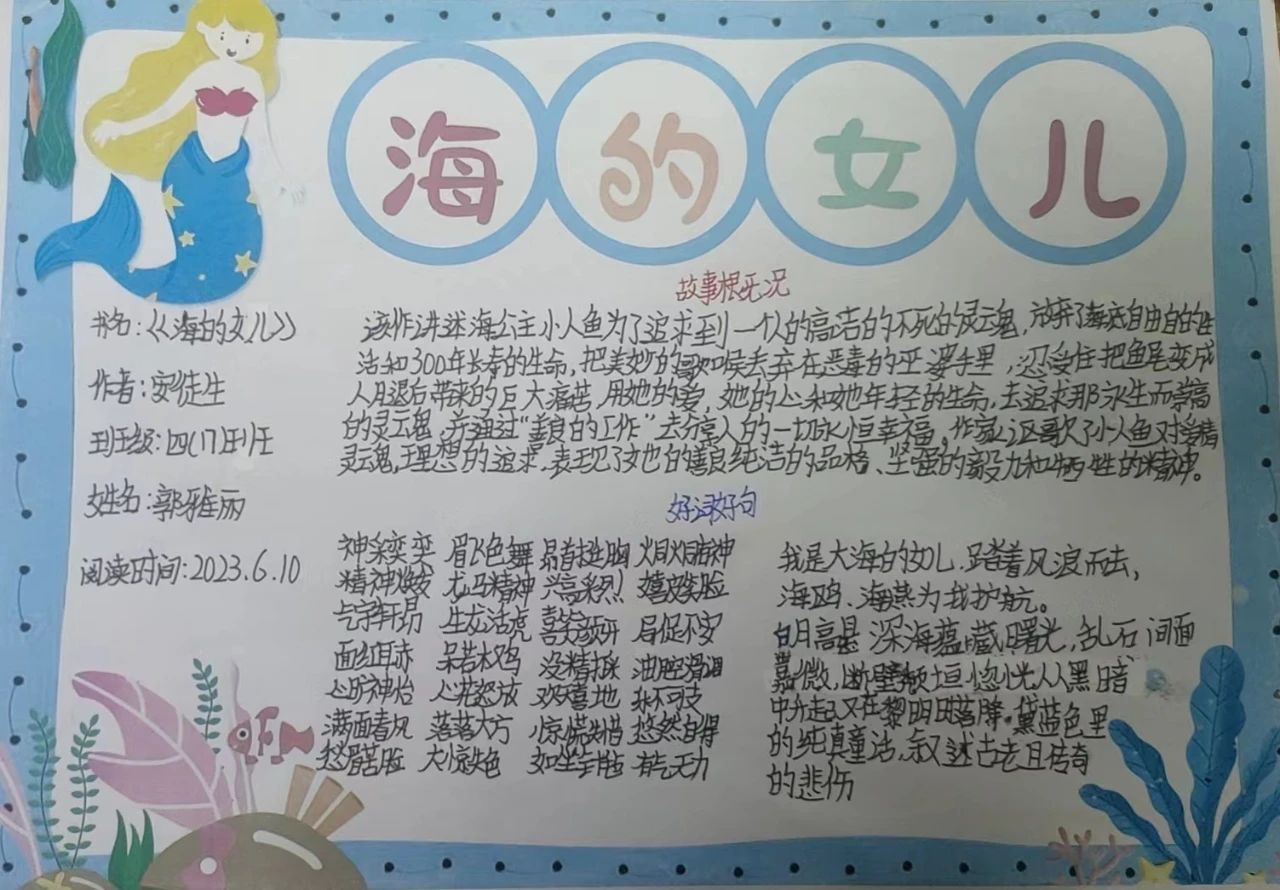 海的女儿
书名:《海的女儿》
作者:安徒生
班级:四(7)班
姓名:郭雅丽
阅读时间:2023.6.10
故事概况
该作讲述海公主小人鱼为了追求到一个人的高洁的不死的灵魂,放弃了海底自由自的生
活和300年长寿的生命,把美妙的歌喉丢弃在恶毒的巫婆手里,忍受住把鱼尾变成
人腿后带来的巨大痛苦,用她的爱,她的心和她年轻的生命,去追求那永生而崇高
的灵魂,并通过“善良的工作”去分享人的一切永恒幸福,作家讴歌了小人鱼对爱情
灵魂,理想的追求,表现了她的善良纯洁的品格、坚强的毅力和牺牲的精神。
好词好句
神采奕奕 眉飞色舞 昂首挺胸 炯炯有神
精神焕发 龙马精神 兴高采烈 嬉皮笑脸
气宇轩昂 生龙活虎 喜笑颜开 局促不安
面红耳赤 呆若木鸡 没精打采 油腔滑调
心旷神怡 心花怒放 欢天喜地 乐不可支
满面春风 落落大方 惊慌失措 悠然自得
愁眉苦脸 大惊失色 如坐针毡 有气无力
我是大海的女儿,踏着风浪而去,
海鸥、海燕为我护航。
明月高悬 深海蕴藏曙光,乱石间面
微,断壁颓垣 惚光从黑暗
中升起又在黎明时落降,黛蓝色里
的纯真童话,叙述古老且传奇
的悲伤